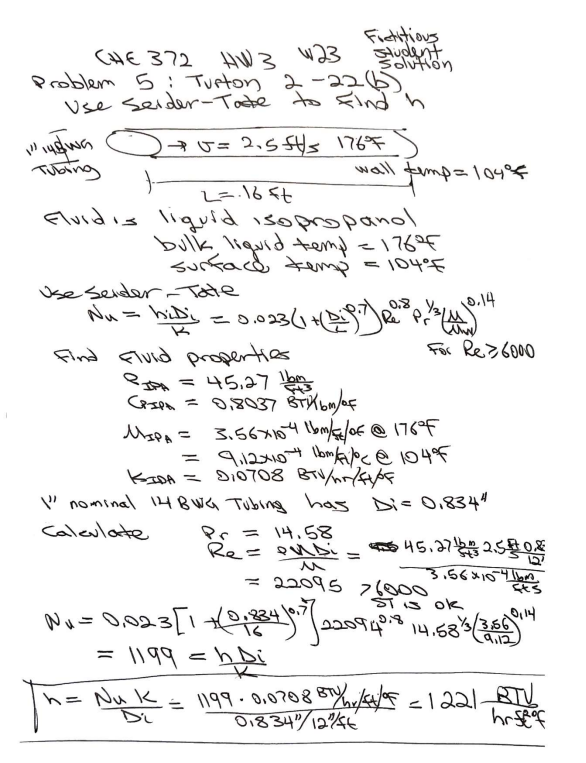 Fictitious
CHE 372 HW 3 W23 student
solution
Problem 5: Turton 2-22(b)
Use Seider-Tate to find h
1" 14BWG
Tubing
→ v = 2.5 ft/s 176°F
wall temp = 104°F
L = 16 ft
Fluid is liquid isopropanol
bulk liquid temp = 176°F
surface temp = 104°F
Use Seider-Tate
Nu = hiDi/K = 0.023(1+(Di/L)^0.7) Re^0.8 Pr^1/3 (μ/μw)^0.14
For Re ≥ 6000
Find Fluid properties
ρIPA = 45.27 lbm/ft3
CPIPA = 0.8037 BTU/lbm/°F
μIPA = 3.56x10^-4 lbm/ft/°F @ 176°F
= 9.12x10^-4 lbm/ft/°C @ 104°F
KIPA = 0.0708 BTU/hr/ft/°F
1" nominal 14 BWG Tubing has Di = 0.834"
Calculate Pr = 14.58
Re = ρuDi/μ = 45.27 lbm/ft3 2.5 ft/s 0.8 /12 / 3.56x10^-4 lbm/ft s
= 22095 >6000
ST is ok
Nu = 0.023[1+(0.834/16)^0.7] 22094^0.8 14.58^1/3 (3.56/9.12)^0.14
= 1199 = hDi/K
h = Nu K/Di = 1199 · 0.0708 BTU/hr/ft/°F / 0.834"/12"/ft = 1221 BTU/hr ft² °F